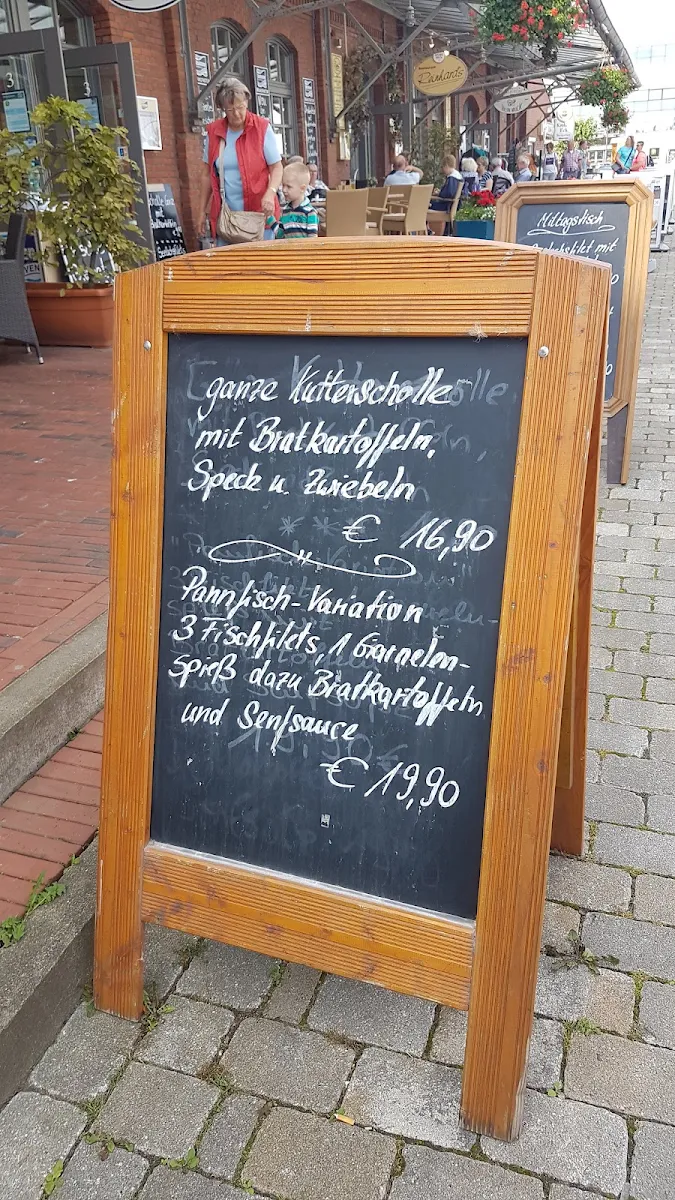 Reinhards
Mittagstisch
mit
ganze Kutterscholle
mit Bratkartoffeln,
Speck u. Zwiebeln
€ 16,90
Pannfisch-Variation
3 Fischfilets, 1 Garnelen-
spieß dazu Bratkartoffeln
und Senfsauce
€ 19,90